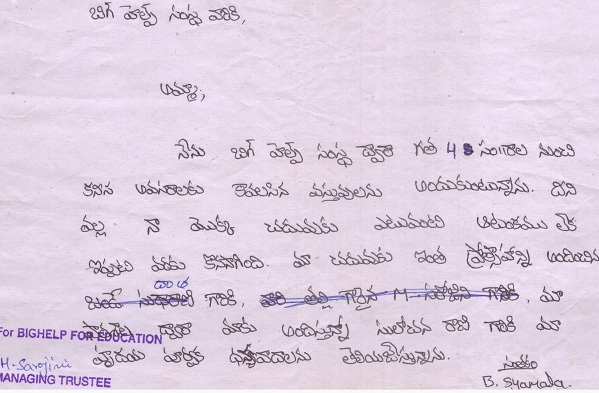 బిగ్ హెల్ప్ సంస్థ వారికి,
అమ్మా;
నేను బిగ్ హెల్ప్ సంస్థ ద్వారా గత 4 సం౹౹రాల నుంచి
కనీస అవసరాలకు కావలసిన వస్తువులను అందుకుంటున్నాను. దీని
వల్ల నా యొక్క చదువుకు ఎటువంటి ఆటంకము లేక
ఇప్పటి వరకు కొనసాగింది. మా చదువుకు ఇంత ప్రోత్సాహాన్ని అందించిన
గారికి, మా
ద్వారా మాకు అందిస్తున్న సులోచన రాణి గారికి మా
హృదయ పూర్వక ధన్యవాదాలను తెలియజేస్తున్నాను.
For BIGHELP FOR EDUCATION
M. Sarojini
MANAGING TRUSTEE
B. Syamala.